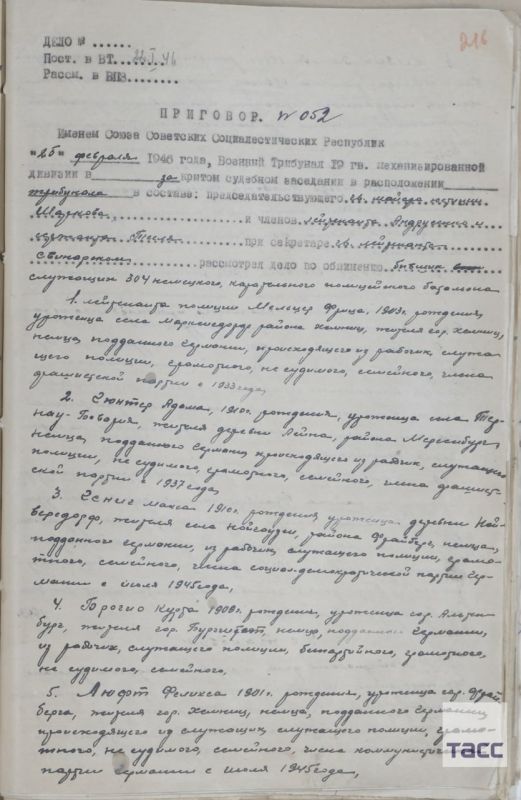 216
ДЕЛО № ......
Пост. в ВТ.. 22.I.46
Рассм. в ВПЗ........
ПРИГОВОР. № 052
Именем Союза Советских Социалестических Республик
"26" февраля 1946 года, Военний Трибунал 19 гв. механизированной
дивизии в закритом судебном заседании в расположении
трибунала в составе: председательствующего гв. майора юстиции
Шаркова, и членов лейтенанта Андрущенко и
сержанта при секретаре гв. лейтенанте
Свинарском рассмотрел дело по обвинению бывших
служащих 304 немецкого, карательного полицейского батальона
1. лейтенанта полиции Мельцер Фрица, 1903 г. рождения,
уроженца села Маркисдорф района Хемниц, жителя гор. Хемниц,
немца, подданного Германии, происходящего из рабочих, служа-
щего полиции, грамотного, не судимого, семейного, члена
фашистской партии с 1933 года,
2. Гюнтер Адама, 1910 г. рождения, уроженца села Тер-
нау-Бавария, жителя деревни Лейна, района Мерсенбург,
немца, подданного Германии, происходящего из рабочих, служащего
полиции, не судимого, грамотного, семейного, члена фашист-
ской партии с 1937 года,
3. Гениг Макса 1910 г. рождения, уроженца деревни Ней-
бередорф, жителя села района Фрайберг, немца,
подданного Германии, из рабочих, служащего полиции, грамот-
ного, семейного, члена социал-демократической партии Гер-
мании с июля 1945 года,
4. Курта 1909 г. рождения, уроженца гор. Альтен-
бург, жителя гор. Бургштат, немца, подданного Германии,
из рабочих, служащего полиции, беспартийного, грамотного,
не судимого, семейного,
5. Люфт Феликса 1901 г. рождения, уроженца гор. Фрай-
берга, жителя гор. Хемниц, немца, подданного Германии
происходящего из служащих, служащего полиции, грамот-
ного, не судимого, семейного, члена коммунистической
партии Германии с июля 1945 года,
ТАСС